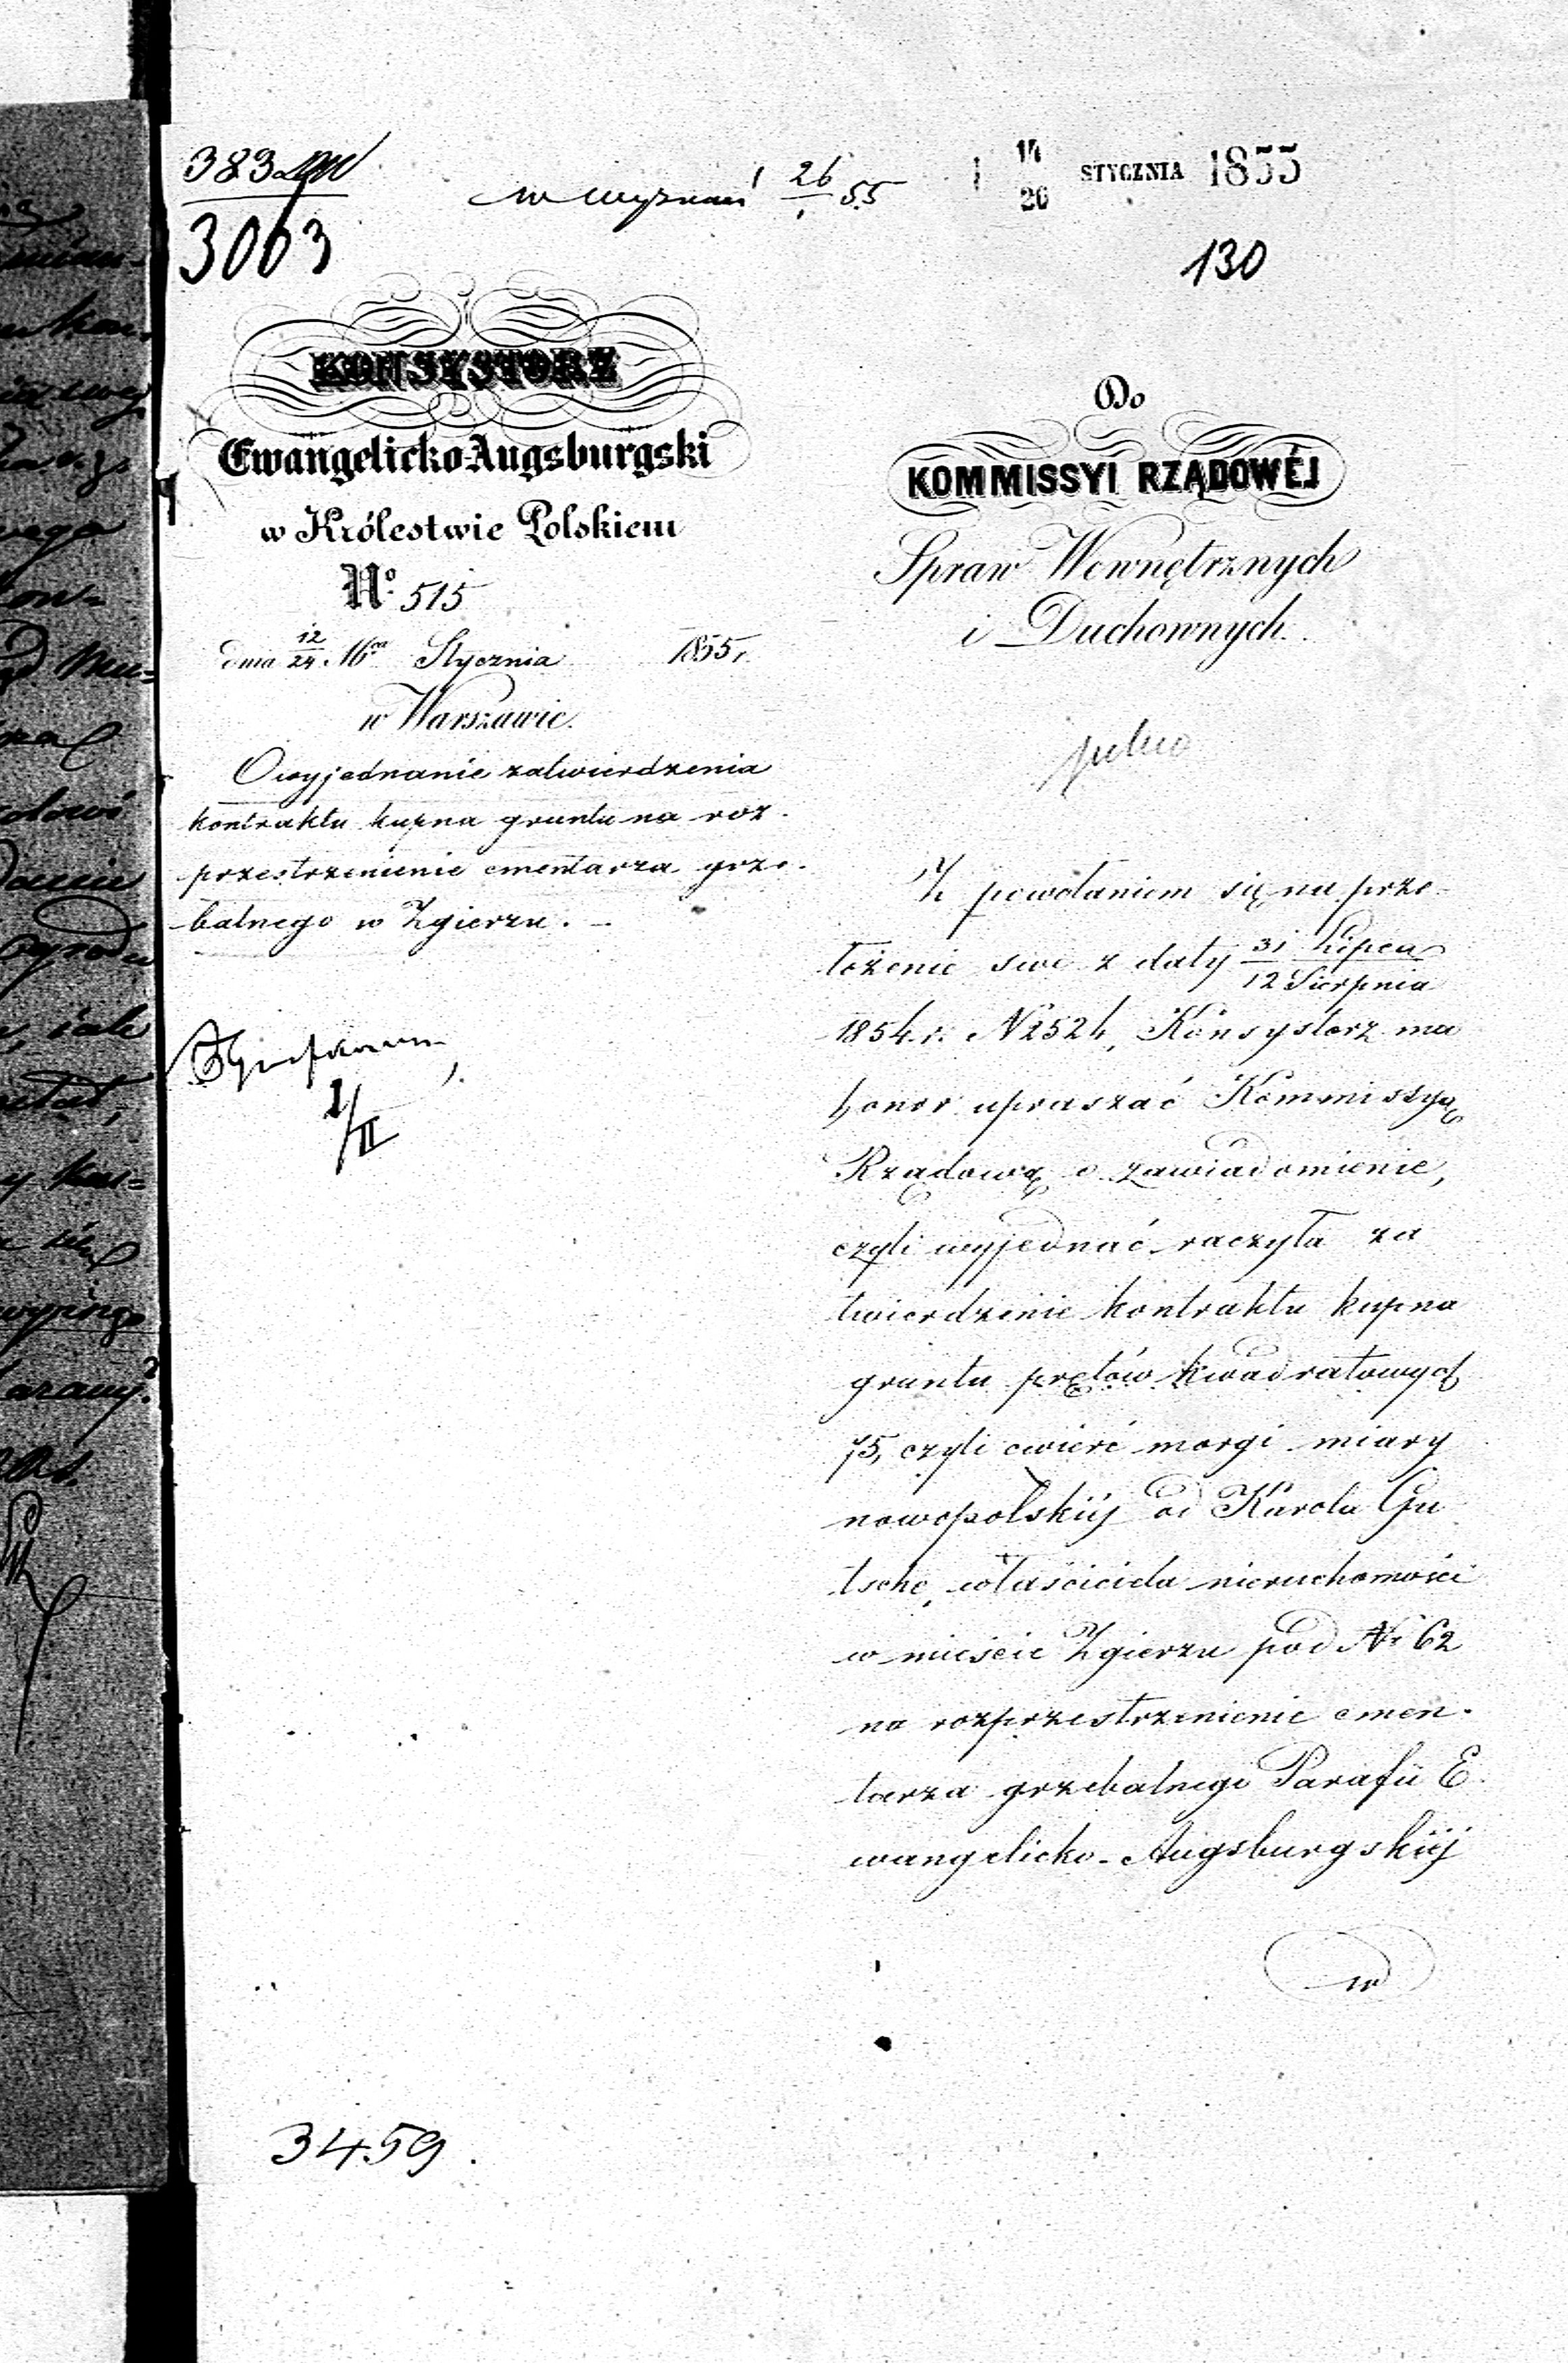 383
3003
w wyznań 26/1 55
14/26 STYCZNIA 1855
130
KONSYSTORZ
Ewangelicko-Augsburgski
w Królestwie Polskiem
No. 515
dnia 12/24 Mca Stycznia 1855 r.
w Warszawie.
O wyjednanie zatwierdzenia
kontraktu kupna gruntu na roz-
przestrzenienie cmentarza grze-
balnego w Zgierzu. –
I/II
3459.
Do
KOMMISSYI RZĄDOWÉJ
Spraw Wewnętrznych
i Duchownych.
Z powołaniem się na prze-
łożenie swe z daty 31 Lipca/12 Sierpnia
1854 r. N 2524, Konsystorz ma
honor upraszać Kommissyę
Rządową o zawiadomienie,
czyli wyjednać raczyła za
twierdzenie kontraktu kupna
gruntu prętów kwadratowych
75, czyli cwierć morgi miary
nowopolskiéj od Karola Gu
tsche, właściciela nieruchomości
w mieście Zgierzu pod Nr 62
na rozprzestrzenienie cmen-
tarza grzebalnego Parafii E
wangelicko-Augsburgskiéj
w